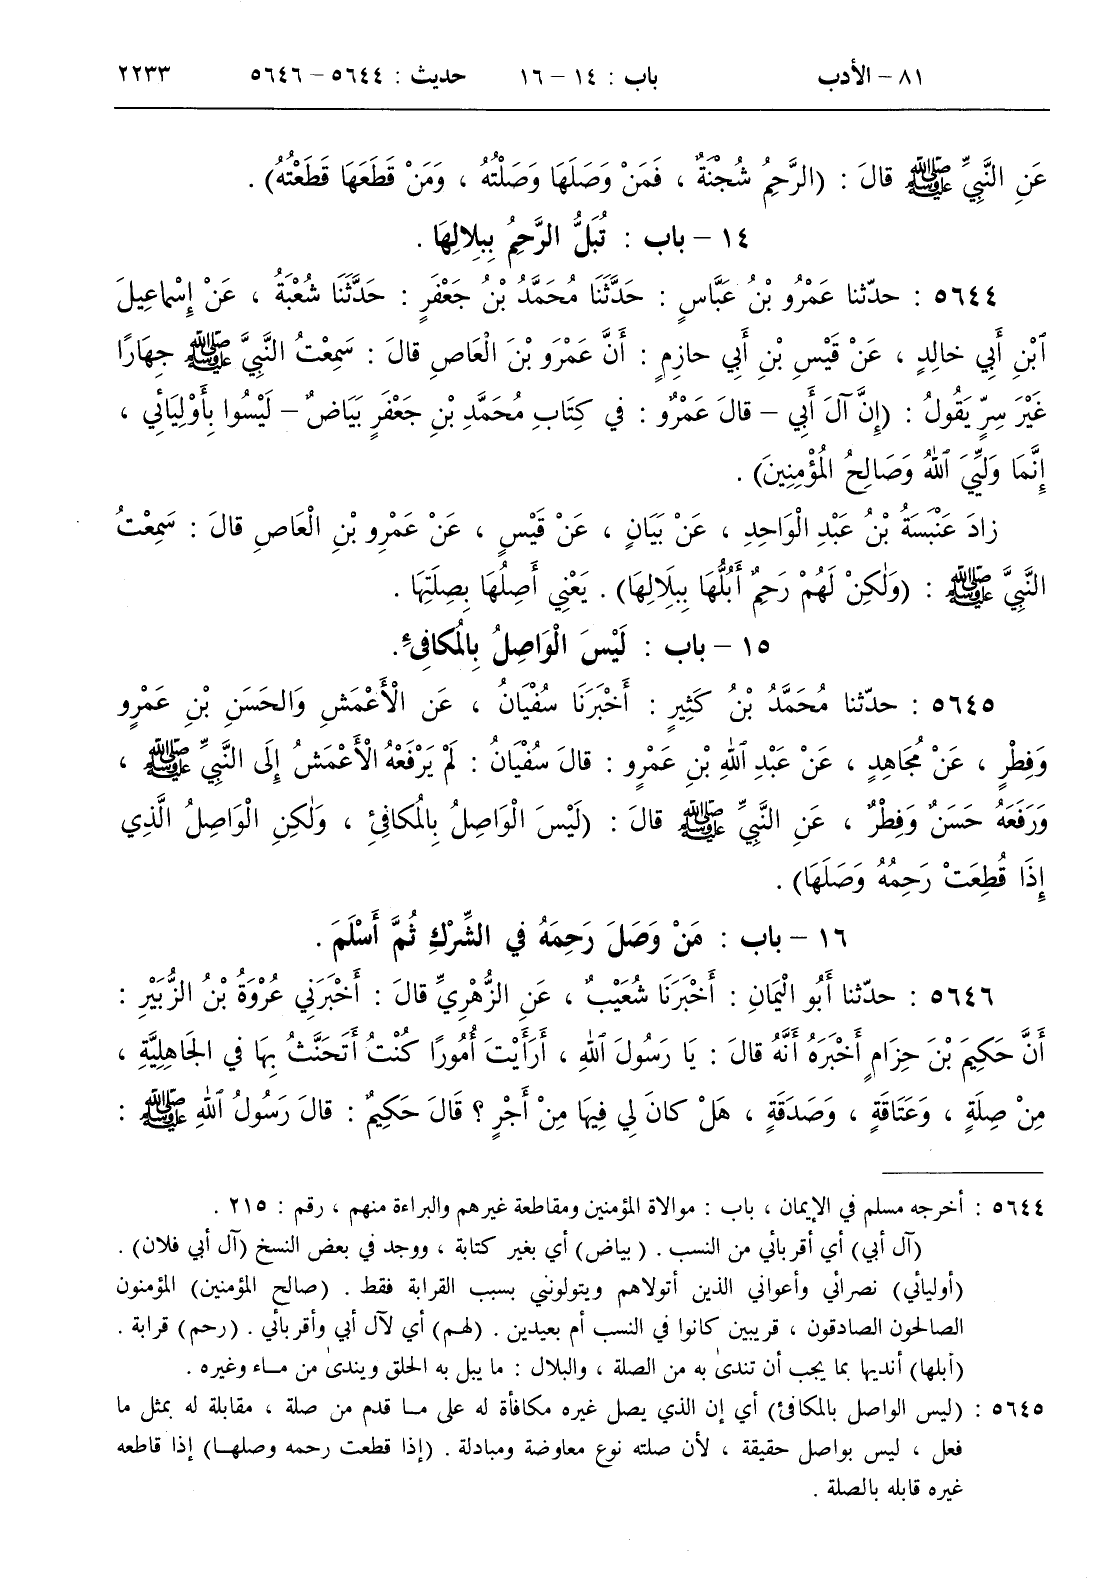 ٨١ – الأدب باب : ١٤ – ١٦ حديث : ٥٦٤٤ – ٥٦٤٦ ٢٢٣٣
عَنِ النَّبِيِّ ﷺ قالَ : (الرَّحِمُ شُجْنَةٌ ، فَمَنْ وَصَلَهَا وَصَلْتُهُ ، وَمَنْ قَطَعَهَا قَطَعْتُهُ) .
١٤ – باب : تُبَلُّ الرَّحِمُ بِبِلَالِهَا .
٥٦٤٤ : حدّثنا عَمْرُو بْنُ عَبَّاسٍ : حَدَّثَنَا مُحَمَّدُ بْنُ جَعْفَرٍ : حَدَّثَنَا شُعْبَةُ ، عَنْ إِسْماعِيلَ
ٱبْنِ أَبِي خالِدٍ ، عَنْ قَيْسِ بْنِ أَبِي حازِمٍ : أَنَّ عَمْرَو بْنَ الْعَاصِ قالَ : سَمِعْتُ النَّبِيَّ ﷺ جِهَارًا
غَيْرَ سِرٍّ يَقُولُ : (إِنَّ آلَ أَبِي – قالَ عَمْرٌو : في كِتَابِ مُحَمَّدِ بْنِ جَعْفَرٍ بَيَاضٌ – لَيْسُوا بِأَوْلِيَائِي ،
إِنَّمَا وَلِيِّيَ ٱللهُ وَصَالِحُ المُؤْمِنِينَ) .
زادَ عَنْبَسَةُ بْنُ عَبْدِ الْوَاحِدِ ، عَنْ بَيَانٍ ، عَنْ قَيْسٍ ، عَنْ عَمْرِو بْنِ الْعَاصِ قالَ : سَمِعْتُ
النَّبِيَّ ﷺ : (وَلٰكِنْ لَهُمْ رَحِمٌ أَبُلُّهَا بِبَلَالِهَا) . يَعْنِي أَصِلُهَا بِصِلَتِهَا .
١٥ – باب : لَيْسَ الْوَاصِلُ بِالْمُكافِئِ .
٥٦٤٥ : حدّثنا مُحَمَّدُ بْنُ كَثِيرٍ : أَخْبَرَنَا سُفْيَانُ ، عَنِ الْأَعْمَشِ وَالحَسَنِ بْنِ عَمْرٍو
وَفِطْرٍ ، عَنْ مُجَاهِدٍ ، عَنْ عَبْدِ ٱللهِ بْنِ عَمْرٍو : قالَ سُفْيَانُ : لَمْ يَرْفَعْهُ الْأَعْمَشُ إِلَى النَّبِيِّ ﷺ ،
وَرَفَعَهُ حَسَنٌ وَفِطْرٌ ، عَنِ النَّبِيِّ ﷺ قالَ : (لَيْسَ الْوَاصِلُ بِالْمُكافِئِ ، وَلٰكِنِ الْوَاصِلُ الَّذِي
إِذَا قُطِعَتْ رَحِمُهُ وَصَلَهَا) .
١٦ – باب : مَنْ وَصَلَ رَحِمَهُ في الشِّرْكِ ثُمَّ أَسْلَمَ .
٥٦٤٦ : حدّثنا أَبُو الْيَمَانِ : أَخْبَرَنَا شُعَيْبٌ ، عَنِ الزُّهْرِيِّ قالَ : أَخْبَرَنِي عُرْوَةُ بْنُ الزُّبَيْرِ :
أَنَّ حَكِيمَ بْنَ حِزَامٍ أَخْبَرَهُ أَنَّهُ قالَ : يَا رَسُولَ ٱللهِ ، أَرَأَيْتَ أُمُورًا كُنْتُ أَتَحَنَّثُ بِهَا في الجَاهِلِيَّةِ ،
مِنْ صِلَةٍ ، وَعَتَاقَةٍ ، وَصَدَقَةٍ ، هَلْ كانَ لِي فِيهَا مِنْ أَجْرٍ ؟ قَالَ حَكِيمٌ : قالَ رَسُولُ ٱللهِ ﷺ :
٥٦٤٤ : أخرجه مسلم في الإيمان ، باب : موالاة المؤمنين ومقاطعة غيرهم والبراءة منهم ، رقم : ٢١٥ .
(آل أبي) أي أقربائي من النسب . (بياض) أي بغير كتابة ، ووجد في بعض النسخ (آل أبي فلان) .
(أوليائي) نصرائي وأعواني الذين أتولاهم ويتولونني بسبب القرابة فقط . (صالح المؤمنين) المؤمنون
الصالحون الصادقون ، قريبين كانوا في النسب أم بعيدين . (لهم) أي لآل أبي وأقربائي . (رحم) قرابة .
(أبلها) أنديها بما يجب أن تندىٰ به من الصلة ، والبلال : ما يبل به الحلق ويندىٰ من مــاء وغيره .
٥٦٤٥ : (ليس الواصل بالمكافئ) أي إن الذي يصل غيره مكافأة له على مــا قدم من صلة ، مقابلة له بمثل ما
فعل ، ليس بواصل حقيقة ، لأن صلته نوع معاوضة ومبادلة . (إذا قطعت رحمه وصلهــا) إذا قاطعه
غيره قابله بالصلة .